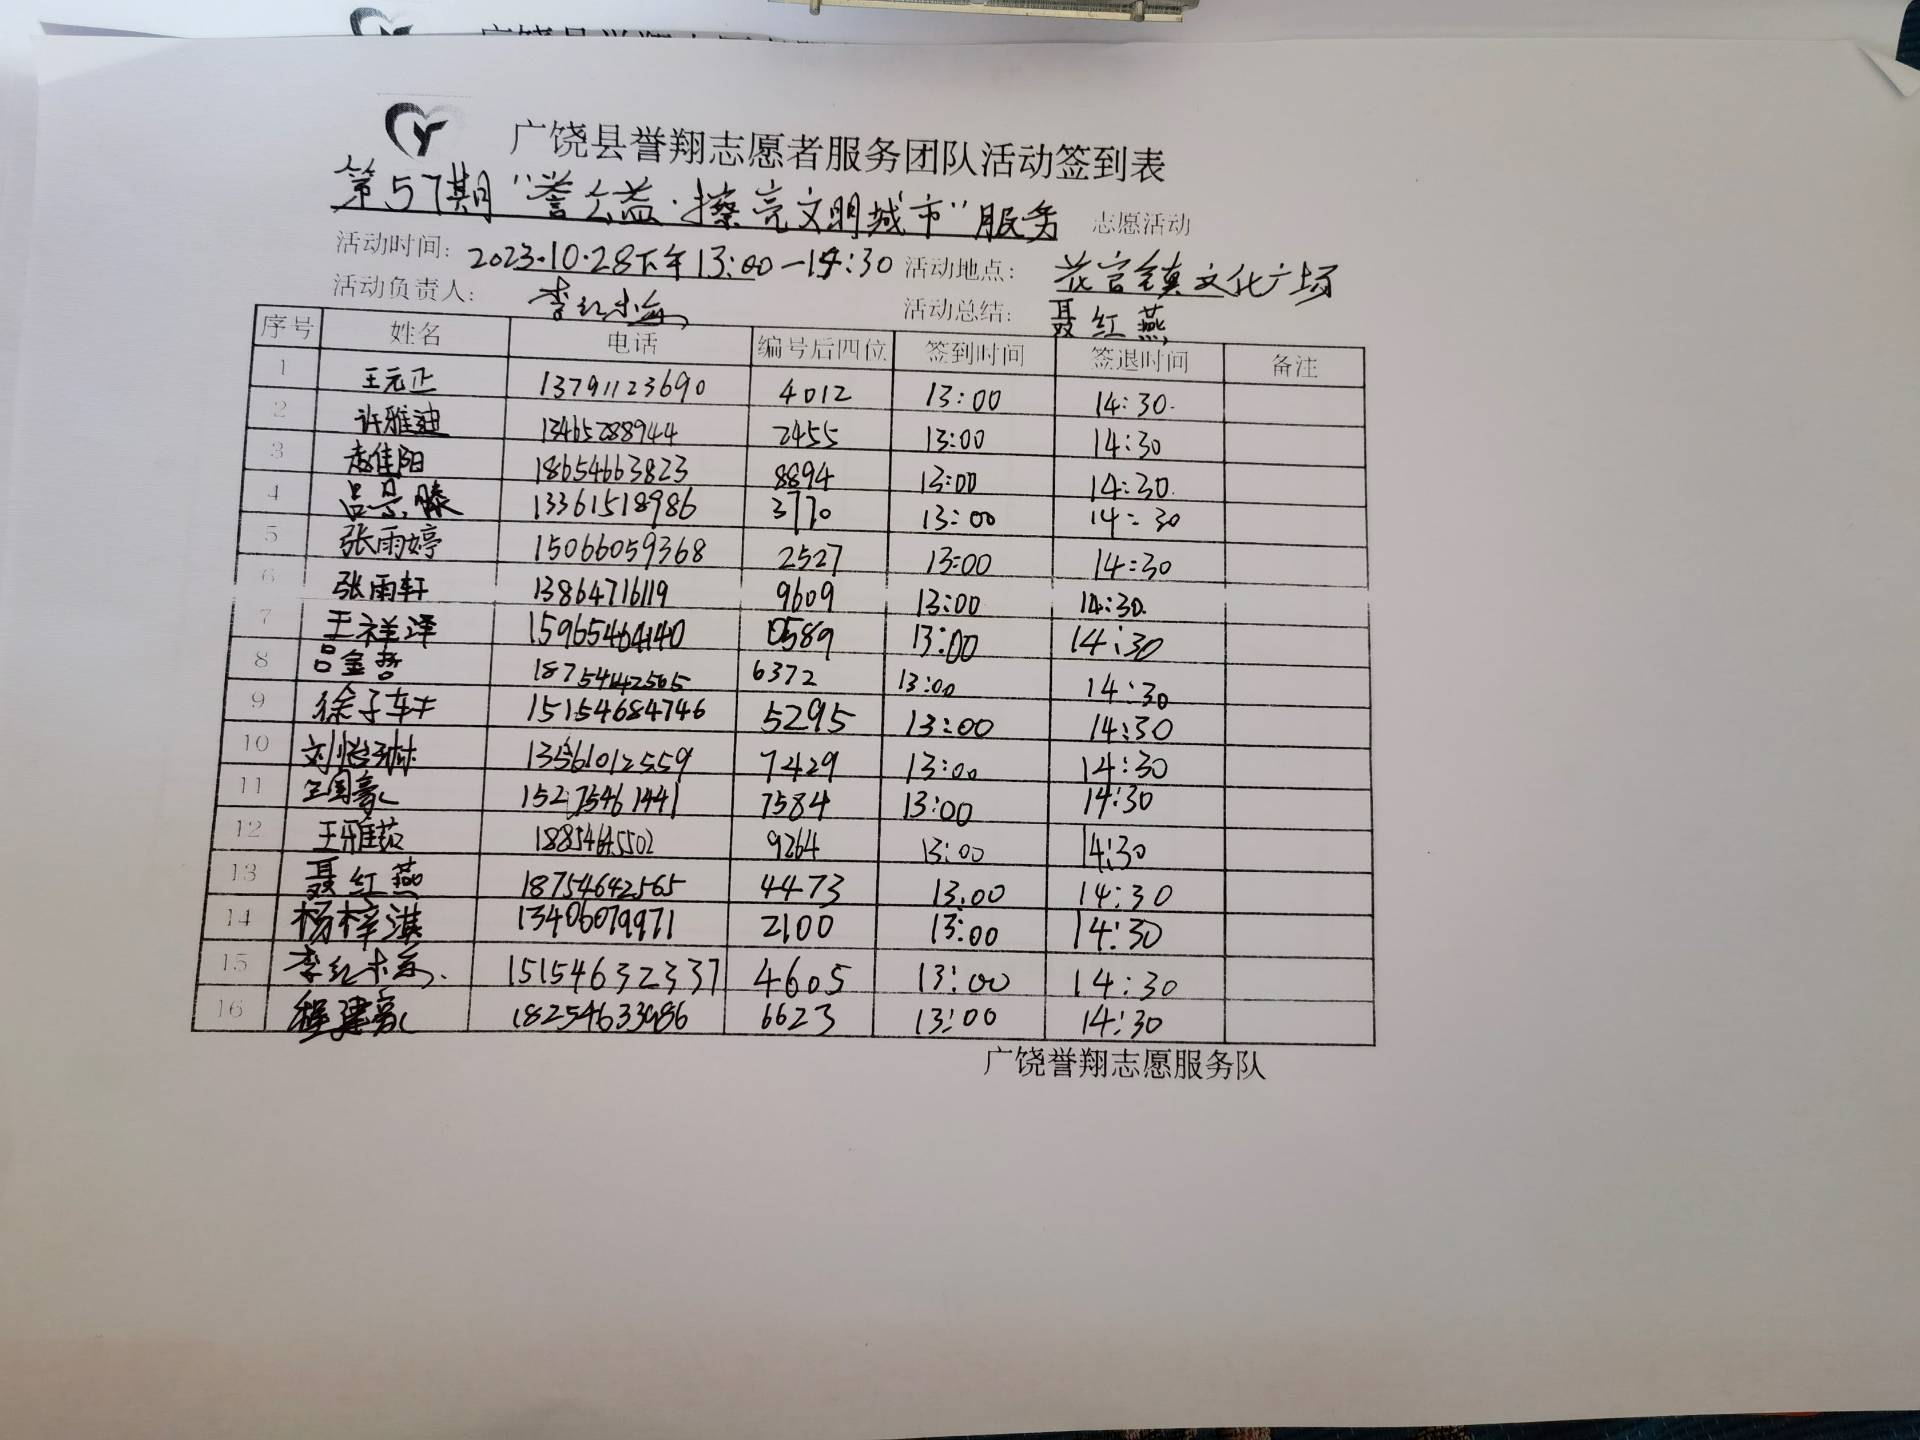 广饶县誉翔志愿者服务团队活动签到表
第57期“誉公益·擦亮文明城市”服务 志愿活动
活动时间: 2023.10.28下午13:00—14:30 活动地点: 花官镇文化广场
活动负责人: 李红梅 活动总结: 聂红燕
序号 姓名 电话 编号后四位 签到时间 签退时间 备注
1 王元正 13791123690 4012 13:00 14:30
2 许雅迪 13465288944 2455 13:00 14:30
3 赵佳阳 18654663823 8894 13:00 14:30
4 吕景滕 13361518986 3770 13:00 14:30
5 张雨婷 15066059368 2527 13:00 14:30
6 张雨轩 13864716119 9609 13:00 14:30
7 王祥泽 15965464140 0589 13:00 14:30
8 吕金哲 6372 13:00 14:30
9 徐子轩 15154684746 5295 13:00 14:30
10 刘怡琳 13561012559 7429 13:00 14:30
11 15275461441 7584 13:00 14:30
12 王雅茹 9264 13:00 14:30
13 聂红燕 18754642565 4473 13:00 14:30
14 杨梓淇 13406079971 2100 13:00 14:30
15 李红梅 15154632337 4605 13:00 14:30
16 程建豪 18254633986 6623 13:00 14:30
广饶誉翔志愿服务队